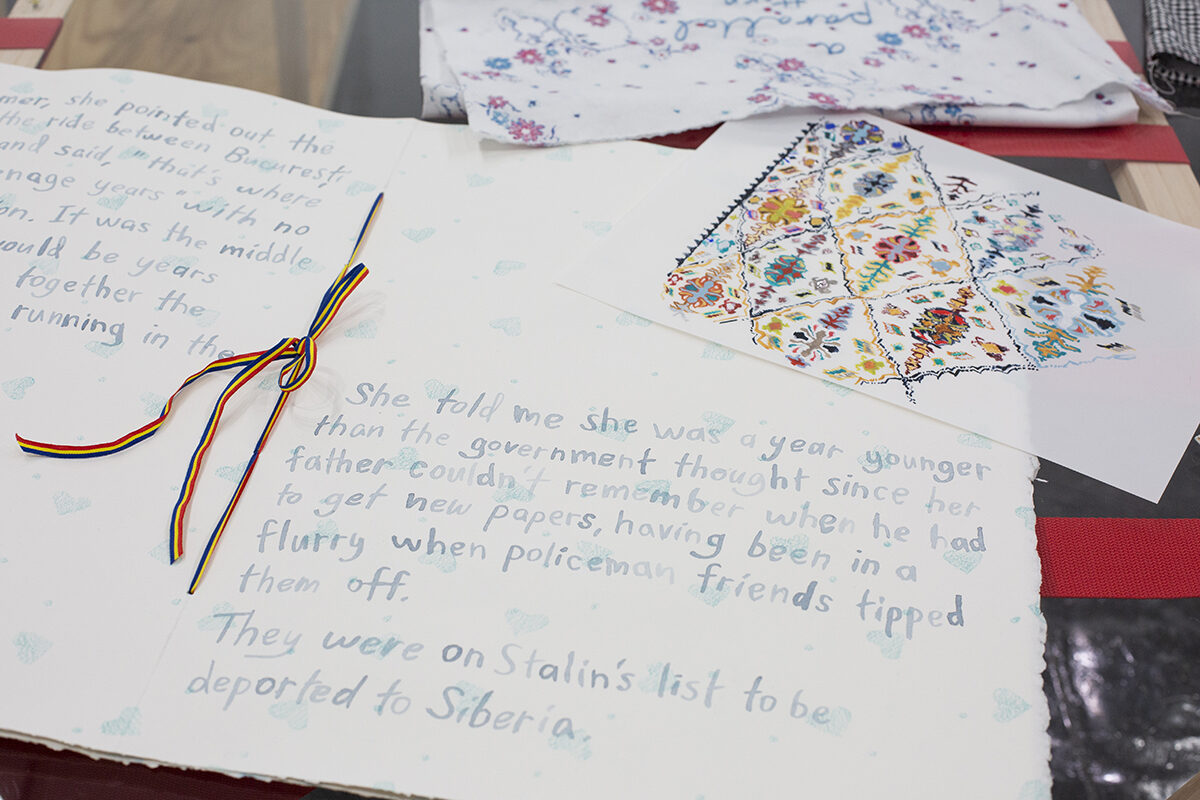 mer, she pointed out the
the ride between Bucureşt,
and said, "that's where
enage years" with no
on. It was the middle
would be years
together the
running in the
She told me she was a year younger
than the government thought since her
father couldn't remember when he had
to get new papers, having been in a
flurry when policeman friends tipped
them off.
They were on Stalin's list to be
deported to Siberia.
a
parallel